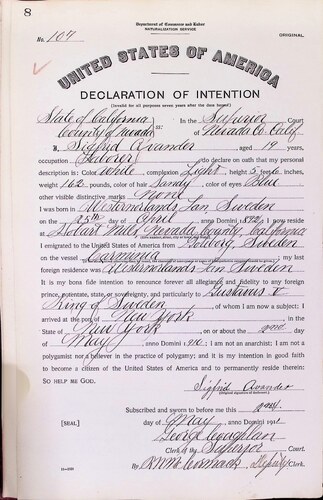 8
Department of Commerce and Labor
NATURALIZATION SERVICE
No. 107
ORIGINAL
UNITED STATES OF AMERICA
DECLARATION OF INTENTION
(Invalid for all purposes seven years after the date hereof)
State of California
County of Nevada ss: In the Superior Court of Nevada Co. Calif.
I, Sigfrid Avander, aged 19 years,
occupation Laborer, do declare on oath that my personal
description is: Color White, complexion Light, height 5 feet inches,
weight 162 pounds, color of hair Sandy, color of eyes Blue
other visible distinctive marks None
I was born in Westernorlands Lan Sweden
on the 25th day of April, anno Domini 1892; I now reside
at Hobart Mills, Nevada County, California
I emigrated to the United States of America from Goteborg, Sweden
on the vessel Carmania; my last
foreign residence was Westernorlands Lan Sweden
It is my bona fide intention to renounce forever all allegiance and fidelity to any foreign
prince, potentate, state, or sovereignty, and particularly to Gustavus V
King of Sweden, of whom I am now a subject; I
arrived at the port of New York, in the
State of New York, on or about the 2nd day
of May, anno Domini 1910; I am not an anarchist; I am not a
polygamist nor a believer in the practice of polygamy; and it is my intention in good faith
to become a citizen of the United States of America and to permanently reside therein:
SO HELP ME GOD.
Sigfrid Avander
(Original signature of declarant)
Subscribed and sworn to before me this
[SEAL]
day of May, anno Domini 1911
George Coughlan
Clerk of the Superior Court.
By R.N. McCormack, Deputy Clerk.